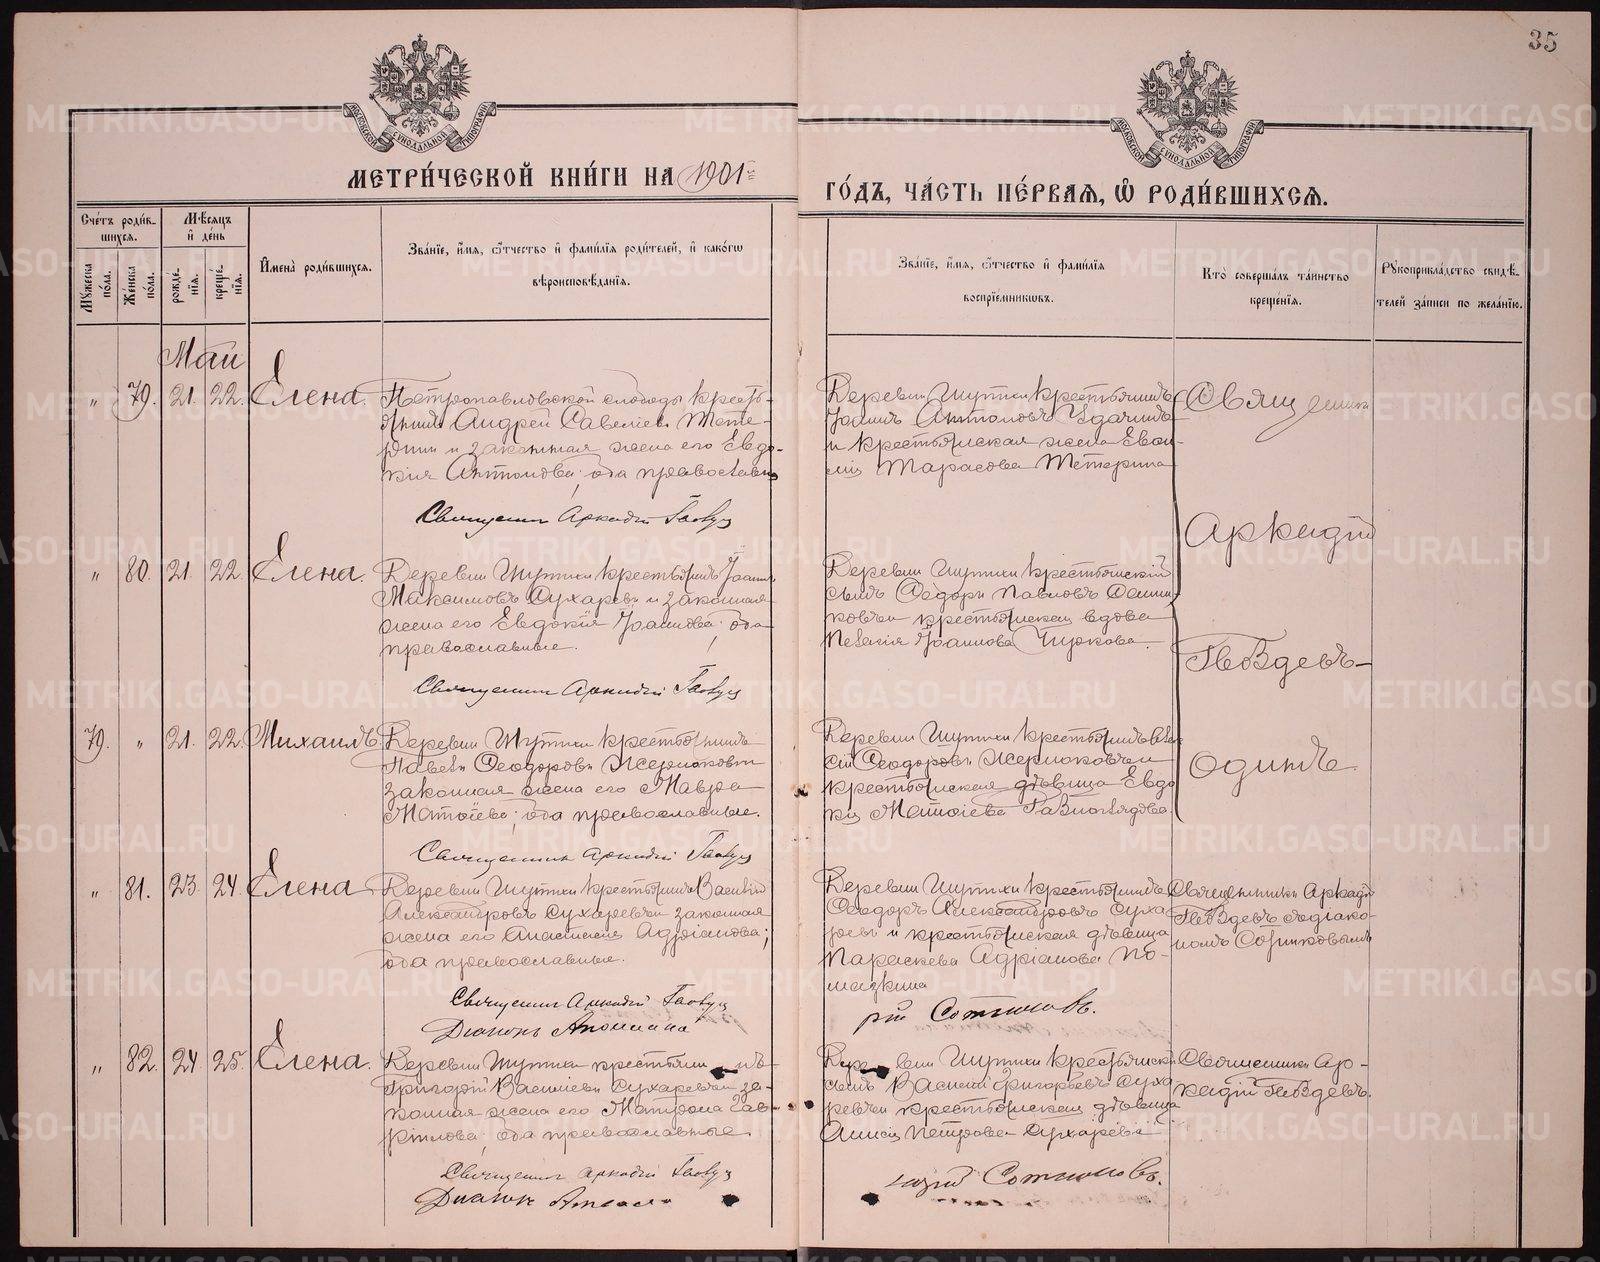 35
МЕТРИ́ЧЕСКОЙ КНИ́ГИ НА 1901
ГО́ДЪ, ЧА́СТЬ ПЕ́РВАѦ, Ѡ҆ РОДИ́ВШИХСѦ.
МОСКОВСКОЙ СѴНОДАЛЬНОЙ ТИПОГРАФІИ
МОСКОВСКОЙ СѴНОДАЛЬНОЙ ТИПОГРАФІИ
Сче́тъ роди́в-
шихся.
Мѣ́сяцъ
и҆ де́нь
Мꙋ́жеска
по́ла.
Же́нска
по́ла.
рожде́-
нїѧ.
креще́-
нїѧ.
И҆мена̀ роди́вшихсѧ.
Зва́нїе, и҆́мѧ, ѻ҆́тчество и҆ фами́лїѧ роди́телей, и҆ како́гѡ
вѣроисповѣ́данїѧ.
Зва́нїе, и҆́мѧ, ѻ҆́тчество и҆ фами́лїѧ
воспрїе́мникѡвъ.
Кто̀ соверша́лъ та́инство
креще́нїѧ.
Рꙋкоприкла́дство свидѣ́-
телей за́писи по жела́нїю.
Май
" 79. 21. 22. Елена.
Петропавловской слободы кресть-
янинъ Андрей Савеліевъ Тете-
ринъ и законная жена его Евдо-
кия Антонова; оба православны
Священникъ Аркадій Гвоздевъ
Деревни Шутихи крестьянинъ
Іоаннъ Антоновъ Удачинъ
и крестьянская жена
Тарасова Тетерина
Священникъ
Аркадій
Гвоздевъ
одинъ.
" 80. 21. 22. Елена.
Деревни Шутихи крестьянинъ Іоаннъ
Максимовъ Сухаревъ и законная
жена его Евдокія Іоаннова; оба
православные.
Священникъ Аркадій Гвоздевъ
Деревни Шутихи крестьянскій
сынъ Ѳеодоръ Павловъ
крестьянская вдова
Пелагія Іоаннова
79. " 21. 22. Михаилъ.
Деревни Шутихи крестьянинъ
Павелъ Ѳеодоровъ
законная жена его Мавра
Матѳіева; оба православные.
Священникъ Аркадій Гвоздевъ
Деревни Шутихи крестьянинъ Алек-
сій Ѳеодоровъ
крестьянская дѣвица Евдо-
кія Матѳіева
" 81. 23. 24. Елена
Деревни Шутихи крестьянинъ Василій
Александровъ Сухаревъ и законная
жена его Анастасія Адріанова;
оба православные.
Священникъ Аркадій Гвоздевъ
Діаконъ Аполлина
Деревни Шутихи крестьянинъ
Ѳеодоръ Александровъ Суха-
ревъ и крестьянская дѣвица
Параскева Адріанова По-
мазкина
рій Сотниковъ.
Священникъ Аркадій
Гвоздевъ съ діако-
номъ Сотниковымъ
" 82. 24. 25. Елена.
Деревни Шутихи крестьянинъ
Григорій Василіевъ Сухаревъ и за-
конная жена его Матрона Гав-
ріилова; оба православные.
Священникъ Аркадій Гвоздевъ
Діаконъ
Деревни Шутихи крестьянскій
сынъ Василій Григорьевъ Суха-
ревъ и крестьянская дѣвица
Анисія Петрова Сухарева
Сотниковъ.
Священникъ Ар-
кадій Гвоздевъ.
METRIKI.GASO-URAL.RU